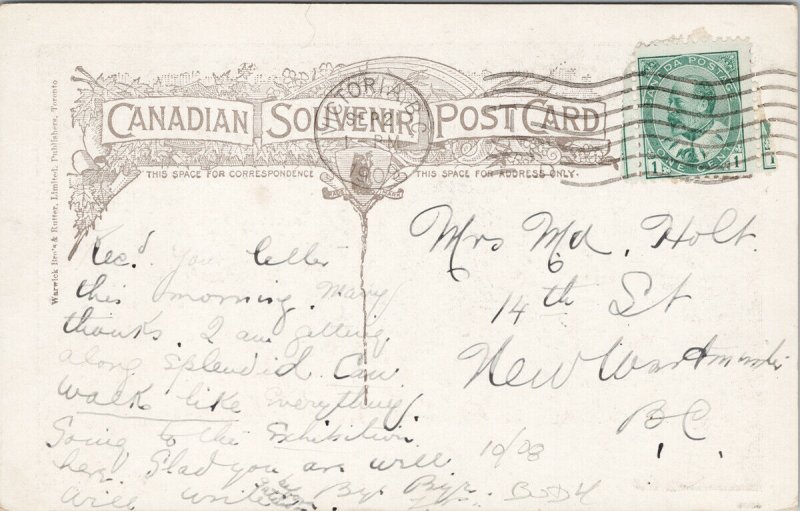 CANADIAN SOUVENIR POST CARD
VICTORIA, B.C.
SEP 2
PM
THIS SPACE FOR CORRESPONDENCE
THIS SPACE FOR ADDRESS ONLY.
Warwick Bro's & Rutter, Limited, Publishers, Toronto
CANADA POSTAGE
1 ONE CENT 1
Rec'd you letter
this morning. Many
thanks. I am getting
along splendid. Can
walk like everything
Going to the Exhibition
here. Glad you are well
will write
Bye Bye.
Mrs Md. Holt
14th St
New Westminster
BC
10/08